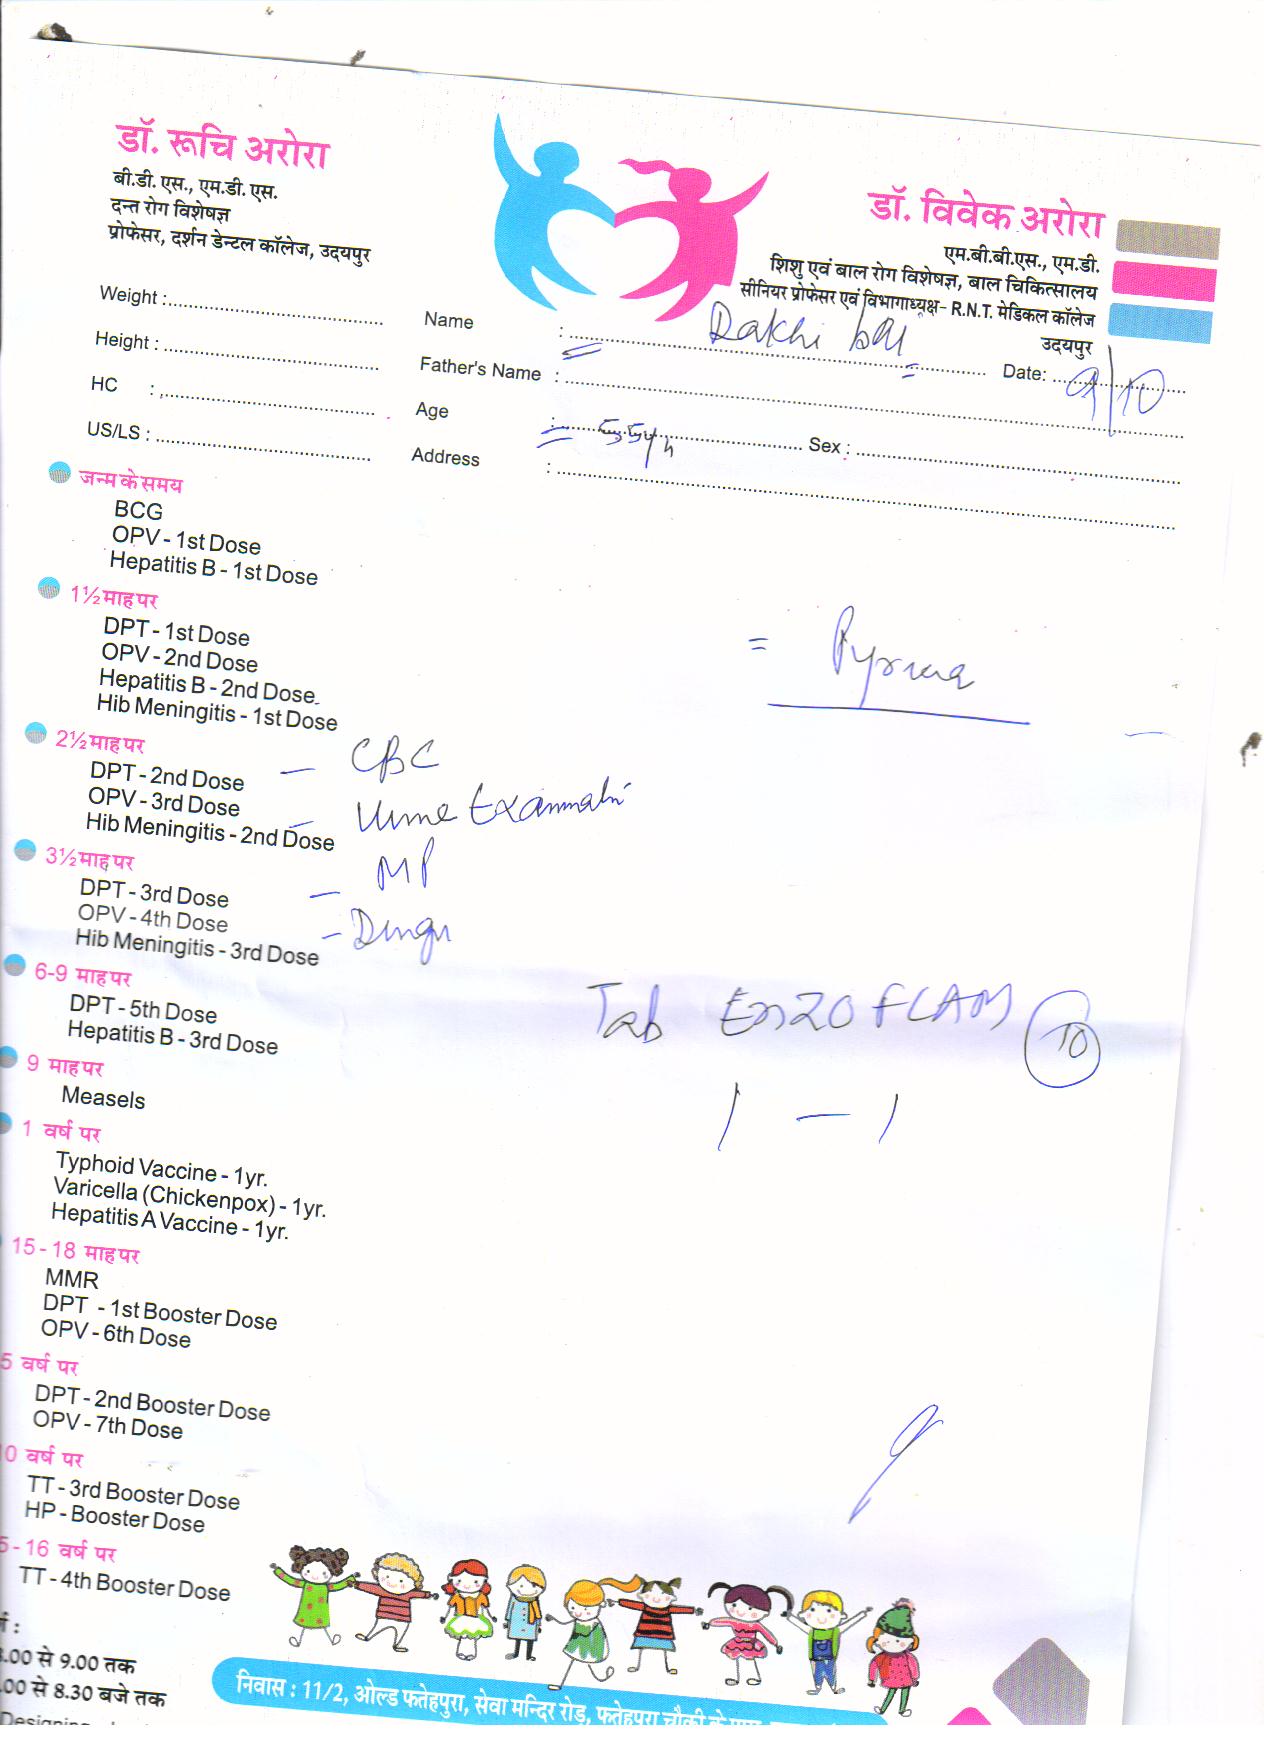 डॉ. रूचि अरोरा
बी.डी. एस., एम.डी. एस.
दन्त रोग विशेषज्ञ
प्रोफेसर, दर्शन डेन्टल कॉलेज, उदयपुर
डॉ. विवेक अरोरा
एम.बी.बी.एस., एम.डी.
शिशु एवं बाल रोग विशेषज्ञ, बाल चिकित्सालय
सीनियर प्रोफेसर एवं विभागाध्यक्ष- R.N.T. मेडिकल कॉलेज
उदयपुर
Weight :
Height :
HC :
US/LS :
Name : Rakhi bai
Date: 9/10
Father's Name :
Age : 55y Sex :
Address :
जन्म के समय
BCG
OPV - 1st Dose
Hepatitis B - 1st Dose
1½ माह पर
DPT - 1st Dose
OPV - 2nd Dose
Hepatitis B - 2nd Dose
Hib Meningitis - 1st Dose
= 
2½ माह पर
DPT - 2nd Dose
OPV - 3rd Dose
Hib Meningitis - 2nd Dose
- CBC
- Urine Examinati
3½ माह पर
DPT - 3rd Dose
OPV - 4th Dose
Hib Meningitis - 3rd Dose
- MP
- Dengu
6-9 माह पर
DPT - 5th Dose
Hepatitis B - 3rd Dose
Tab ENZOFLAM 10
1 - 1
9 माह पर
Measels
1 वर्ष पर
Typhoid Vaccine - 1yr.
Varicella (Chickenpox) - 1yr.
Hepatitis A Vaccine - 1yr.
15 - 18 माह पर
MMR
DPT - 1st Booster Dose
OPV - 6th Dose
5 वर्ष पर
DPT - 2nd Booster Dose
OPV - 7th Dose
0 वर्ष पर
TT - 3rd Booster Dose
HP - Booster Dose
5 - 16 वर्ष पर
TT - 4th Booster Dose
.00 से 9.00 तक
.00 से 8.30 बजे तक
निवास : 11/2, ओल्ड फतेहपुरा, सेवा मन्दिर रोड़, फतेहपुरा चौकी के पास